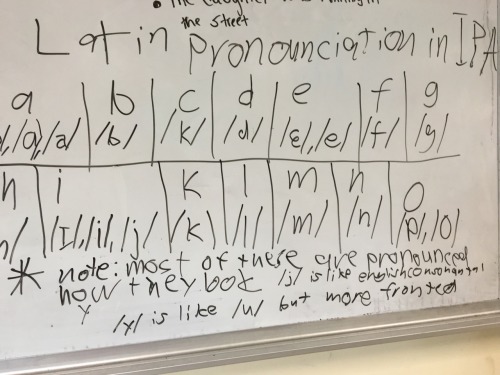 the street
Latin Pronounciation in IPA
a b c d e f g
/ɑ/,/a/ /b/ /k/ /d/ /ɛ/,/e/ /f/ /g/
h i k l m n o
/ɪ/,/i/,/j/ /k/ /l/ /m/ /n/ /o/
* note: most of these are pronounced
how they look /j/ is like english consonantal
y /y/ is like /u/ but more fronted